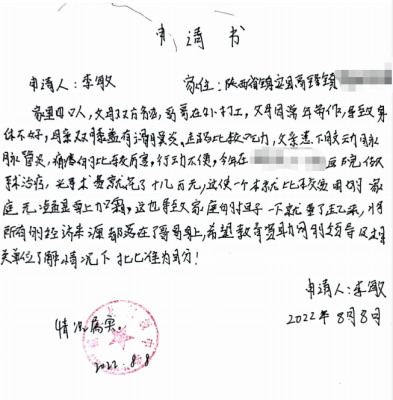 申请书
申请人：李敏 家住：陕西省镇安县高峰镇
家里四口人，父母双方务农，哥哥在外打工，父母因常年劳作，导致身
体不好，母亲双膝患有滑膜炎，走路比较吃力，父亲患下肢动脉
脉管炎，痛的比较厉害，行动不便，今年在 医院做
手术治疗，光手术费就花了十几万元，这使一个本就比较困难的家
庭无疑是雪上加霜，这也导致家庭的担子一下就重了起来，将
所有的经济来源都落在了哥哥身上，希望教育资助网的领导及相
关单位了解情况下批准为盼！
申请人：李敏
2022年8月8日
情况属实。
2022.8.8